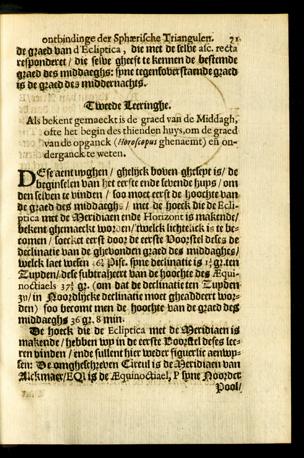 ontbindinge der Sphærische Triangulen. 71
de graed van d'Ecliptica, die met de selve asc. recta
responderet / die selve gheeft te kennen de bestemde
graed des middaeghs: syne tegenoverstaende graed
is de graed des middernachts.
Tweede Leeringhe.
Als bekent gemaeckt is de graed van de Middagh,
ofte het begin des thienden huys, om de graed
van de opganck (Horoscopus ghenaemt) en on-
derganck te weten.
DEse aenwysghen / ghelijck boven gheseyt is / de
beginselen van het eerste ende sevende huys / om
den selven te vinden / soo moet eerst de hoochte van
de graed des middaeghs / met de hoeck die de Ecli-
ptica met de Meridiaen ende Horizont is makende /
bekent ghemaeckt worden / twelck lichtelick is te be-
comen / soeckt eerst door de eerste Voorstel deses de
declinatie van de ghevonden graed des middaghes /
welck laet wesen Pisc. syne declinatie is gr. ten
Zuyden / dese subtraheert van de hoochte des Æqui-
noctiaels 37 gr. (om dat de declinatie ten Zuyden
zy / in Noordlijcke declinatie moet gheaddeert wor-
den) soo becomt men de hoochte van de graed des
middaeghs 36 gr. 8 min.
De hoeck die de Ecliptica met de Meridiaen is
makende / hebben wy in de eerste Voorstel deses lee-
ren vinden / ende sullent hier weder figuerlic aenwy-
sen: De omgheschreven Circul is de Meridiaen van
Alckmaer / EQ is de Æquinoctiael, P syne Noorder
Pool /